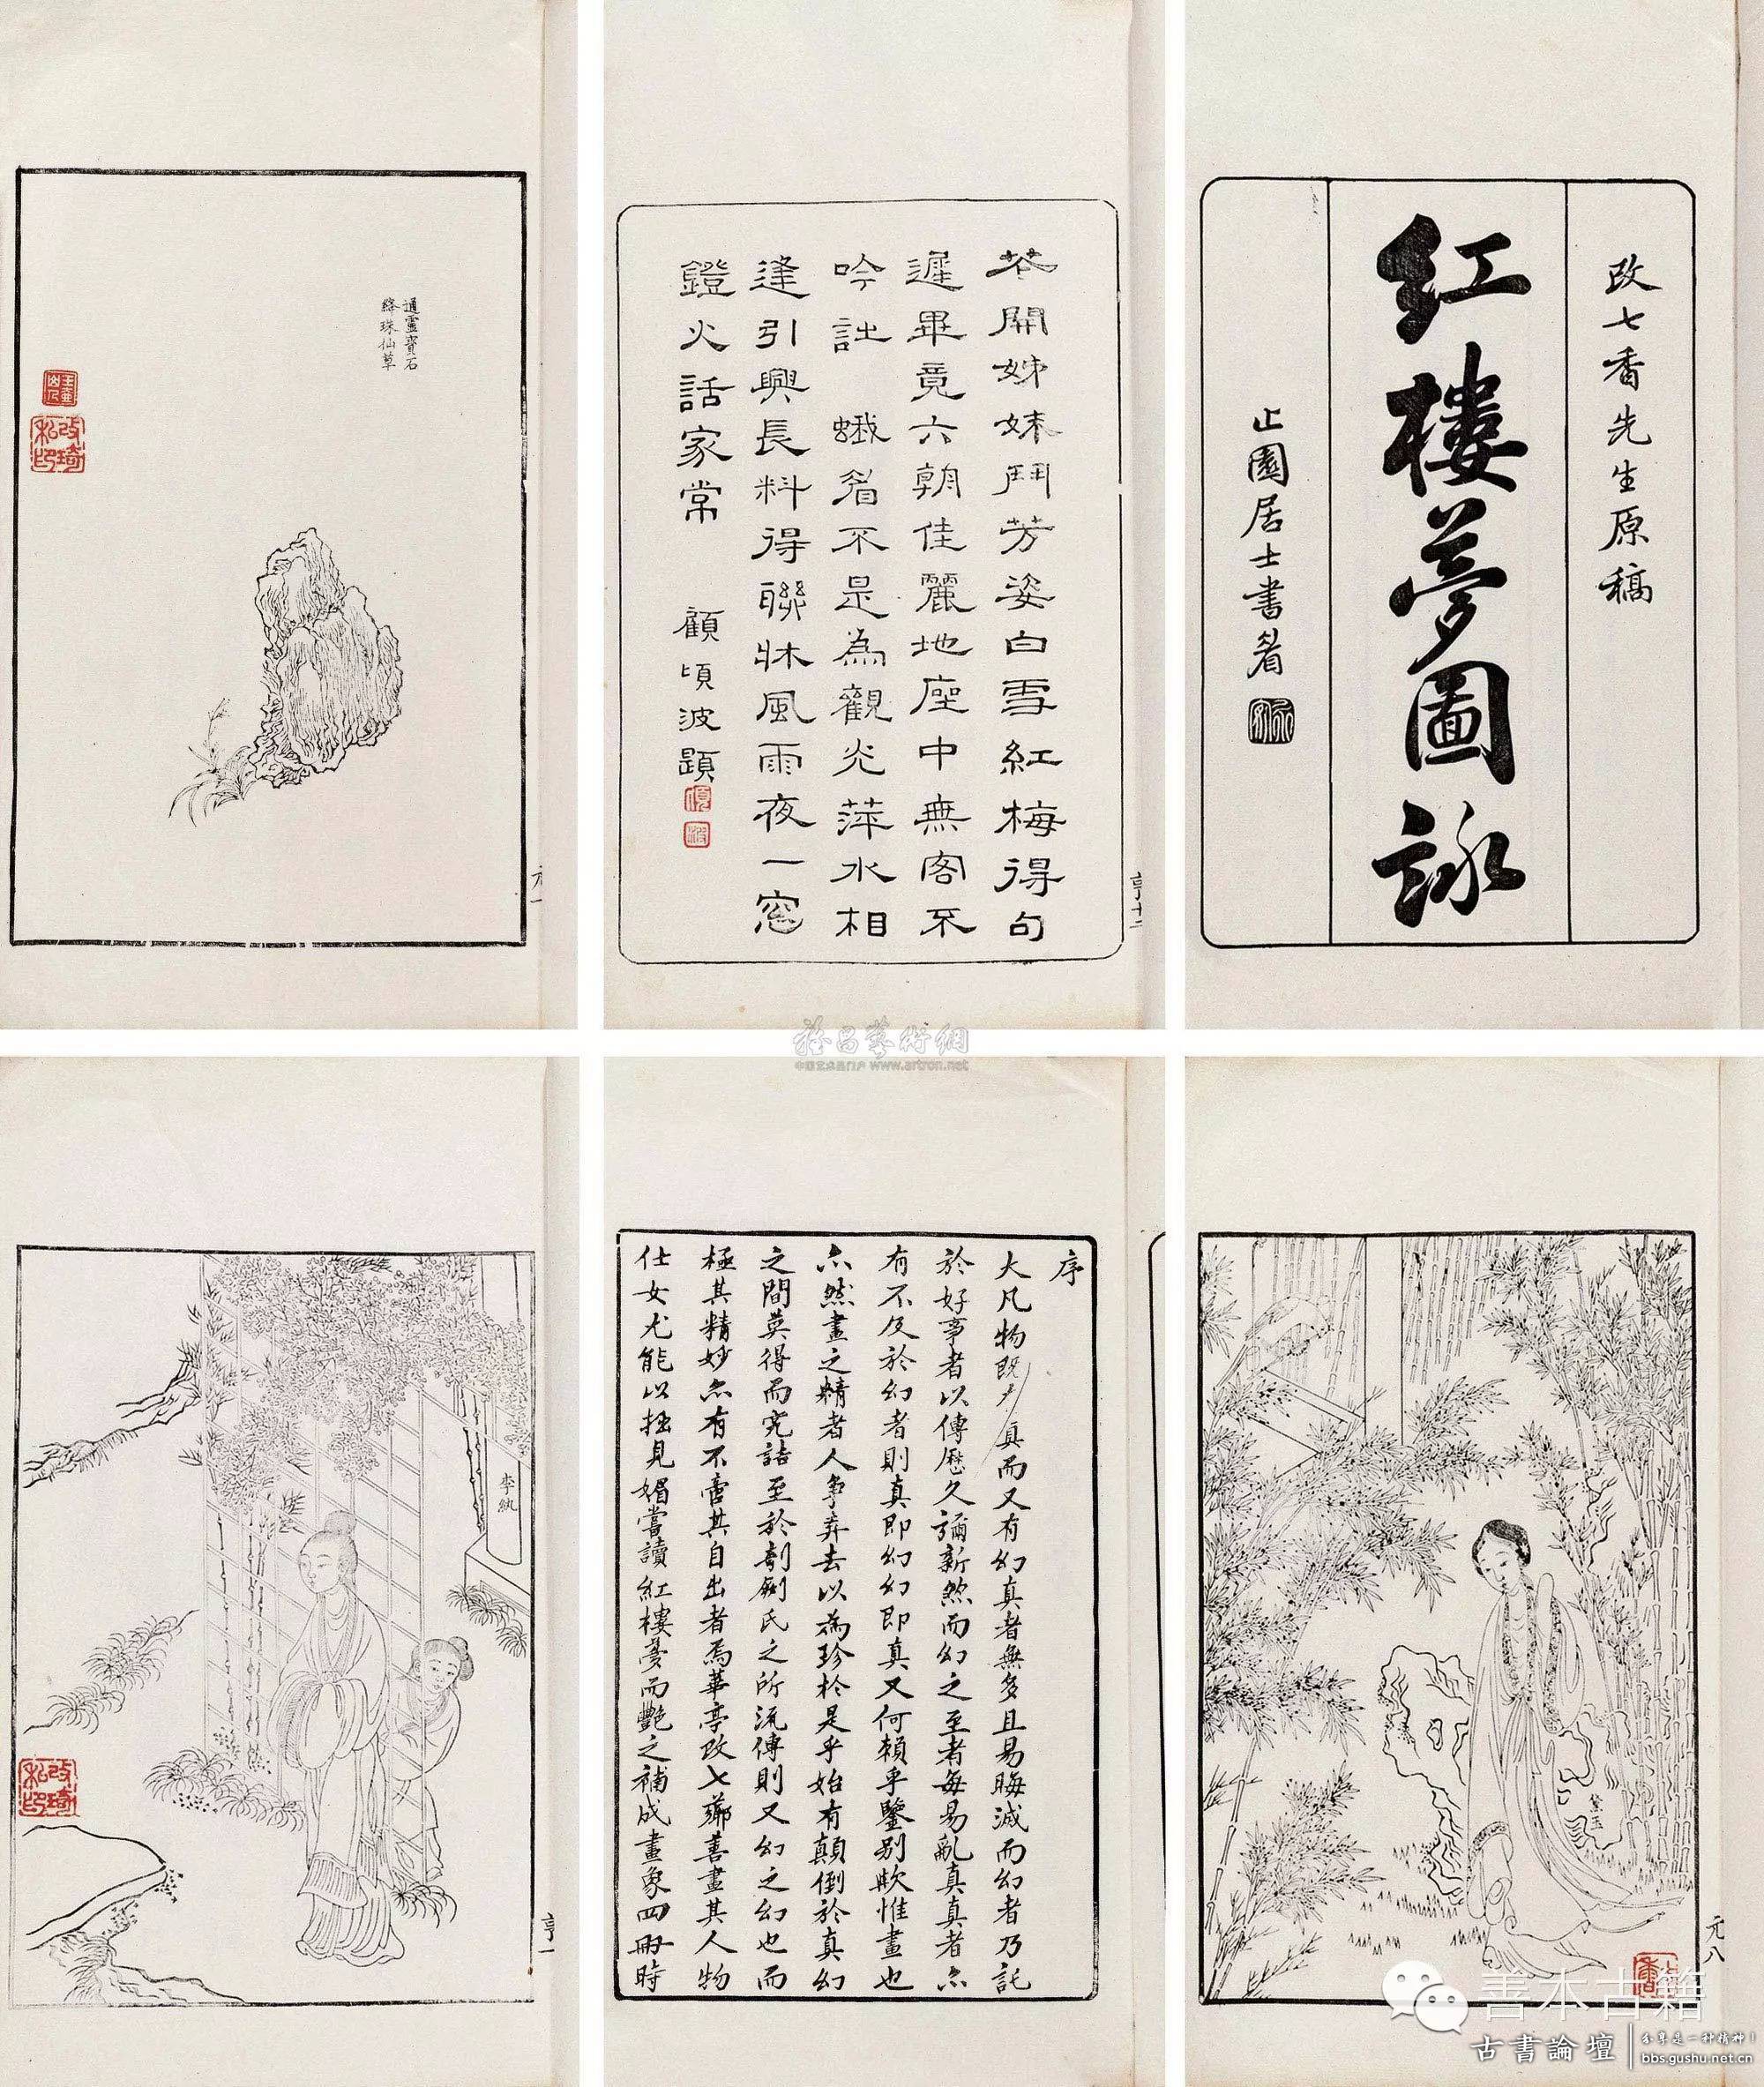 改七香先生原稿
紅樓夢圖詠
止園居士書耑
花開姊妹鬥芳姿白雪紅梅得句
遲畢竟六朝佳麗地座中無客不
吟詩 蛾眉不是為觀光萍水相
逢引興長料得聯牀風雨夜一窓
鐙火話家常
顧頃波題
亨十二
通靈寶石
絳珠仙草
改琦私印
元一
黛玉
元八
序
大凡物既有真而又有幻真者無多且易晦滅而幻者乃託
於好事者以傳歷久彌新然而幻之至者每易亂真真者亦
有不及於幻者則真即幻幻即真又何賴乎鑒別歟惟畫也
亦然畫之精者人爭弆去以為珍於是乎始有顛倒於真幻
之間莫得而究詰至於剞劂氏之所流傳則又幻之幻也而
極其精妙亦有不啻其自出者焉華亭改七薌善畫其人物
仕女尤能以拙見媚嘗讀紅樓夢而艷之補成畫象四冊時
李紈
改琦私印
亨一
雅昌藝術網
中国艺术品门户 www.artron.net
善本古籍
古書論壇
分享是一种精神!
bbs.gushu.net.cn